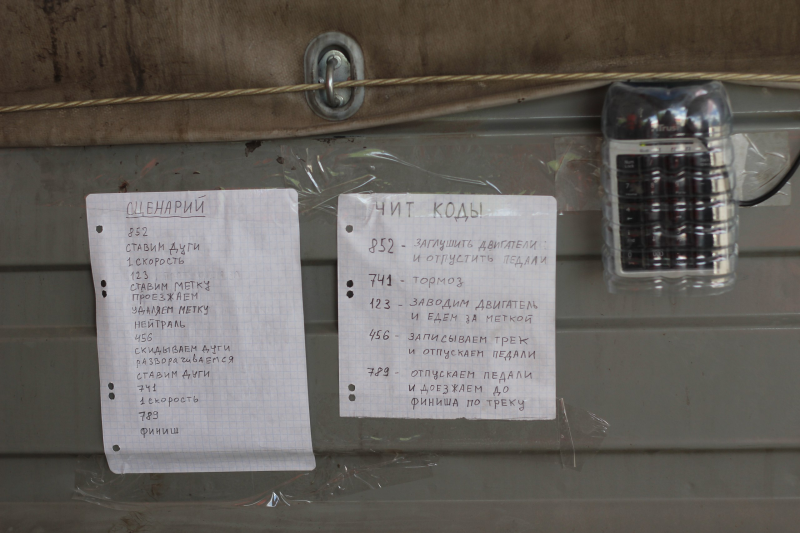 СЦЕНАРИЙ
852
СТАВИМ ДУГИ
1 СКОРОСТЬ
123
СТАВИМ МЕТКУ
ПРОЕЗЖАЕМ
УДАЛЯЕМ МЕТКУ
НЕЙТРАЛЬ
456
СКИДЫВАЕМ ДУГИ
РАЗВОРАЧИВАЕМСЯ
СТАВИМ ДУГИ
741
1 СКОРОСТЬ
789
ФИНИШ
ЧИТ КОДЫ
852 - ЗАГЛУШИТЬ ДВИГАТЕЛИ
И ОТПУСТИТЬ ПЕДАЛИ
741 - ТОРМОЗ
123 - ЗАВОДИМ ДВИГАТЕЛЬ
И ЕДЕМ ЗА МЕТКОЙ
456 - ЗАПИСЫВАЕМ ТРЕК
И ОТПУСКАЕМ ПЕДАЛИ
789 - ОТПУСКАЕМ ПЕДАЛИ
И ДОЕЗЖАЕМ ДО
ФИНИША ПО ТРЕКУ